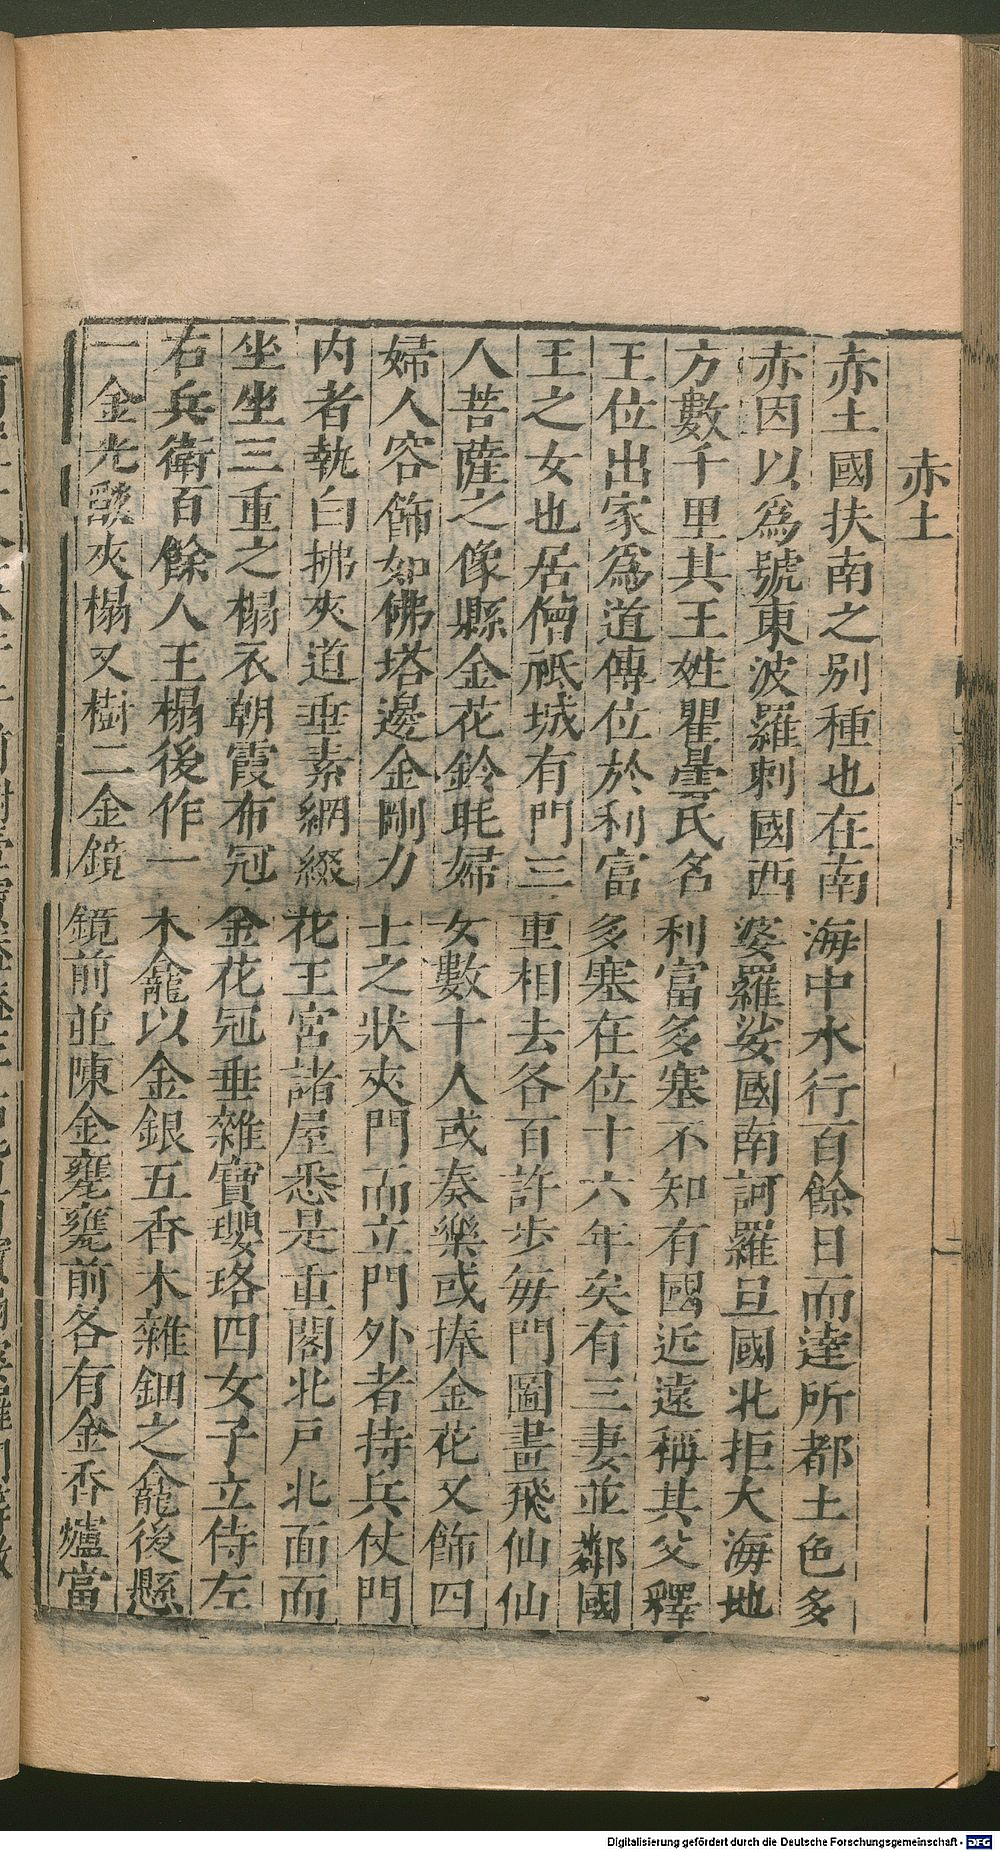 赤土
赤土國扶南之別種也在南海中水行百餘日而達所都土色多
赤因以爲號東波羅剌國西婆羅娑國南訶羅旦國北拒大海地
方數千里其王姓瞿曇氏名利富多塞不知有國近遠稱其父釋
王位出家爲道傳位於利富多塞在位十六年矣有三妻並鄰國
王之女也居僧祗城有門三重相去各百許步每門圖畫飛仙仙
人菩薩之像縣金花鈴毦婦女數十人或奏樂或捧金花又飾四
婦人容飾如佛塔邊金剛力士之狀夾門而立門外者持兵仗門
內者執白拂夾道垂素網綴花王宮諸屋悉是重閣北戶北面而
坐坐三重之榻衣朝霞布冠金花冠垂雜寶瓔珞四女子立侍左
右兵衛百餘人王榻後作一木龕以金銀五香木雜鈿之龕後懸
一金光燄夾榻又樹二金鏡鏡前並陳金甕甕前各有金香爐當
Digitalisierung gefördert durch die Deutsche Forschungsgemeinschaft - DFG